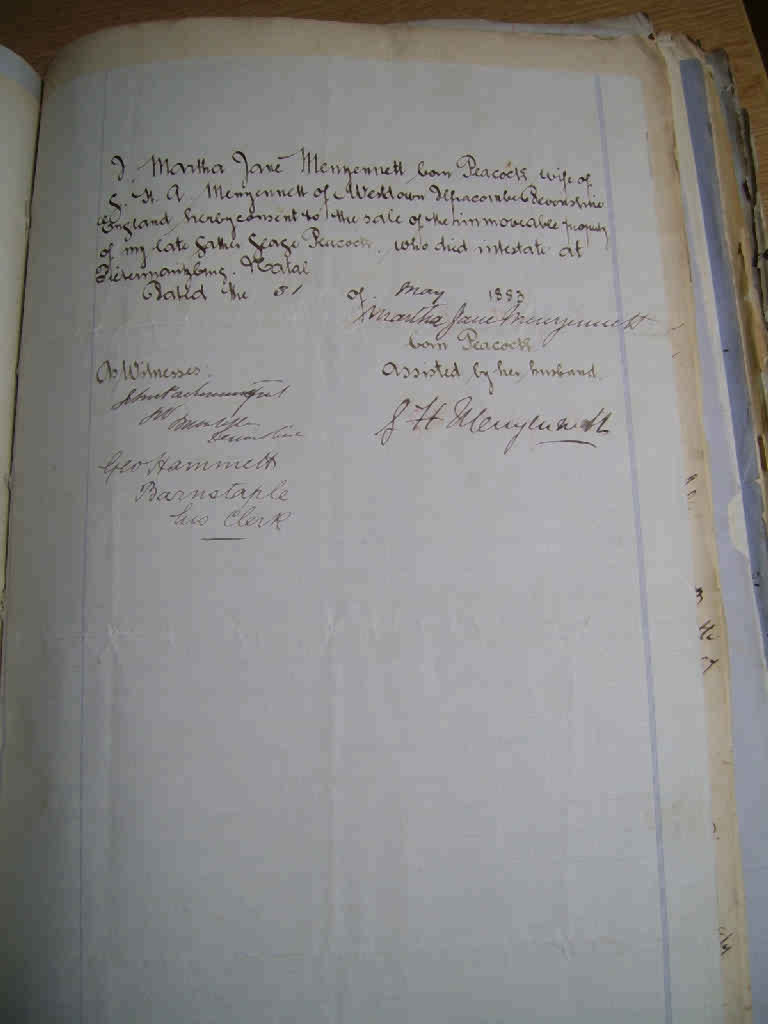 I, Martha Jane Menyennett born Peacock wife of
G. H. A. Menyennett of Westdown Ilfracombe Devonshire
England hereby consent to the sale of the immoveable property
of my late father George Peacock. who died intestate at
Pietermaritzburg. Natal
Dated the 31 of May 1883
Martha Jane Menyennett
born Peacock
As Witnesses: Assisted by her husband.
G H Menyennett
Geo Hammett
Barnstaple
his Clerk